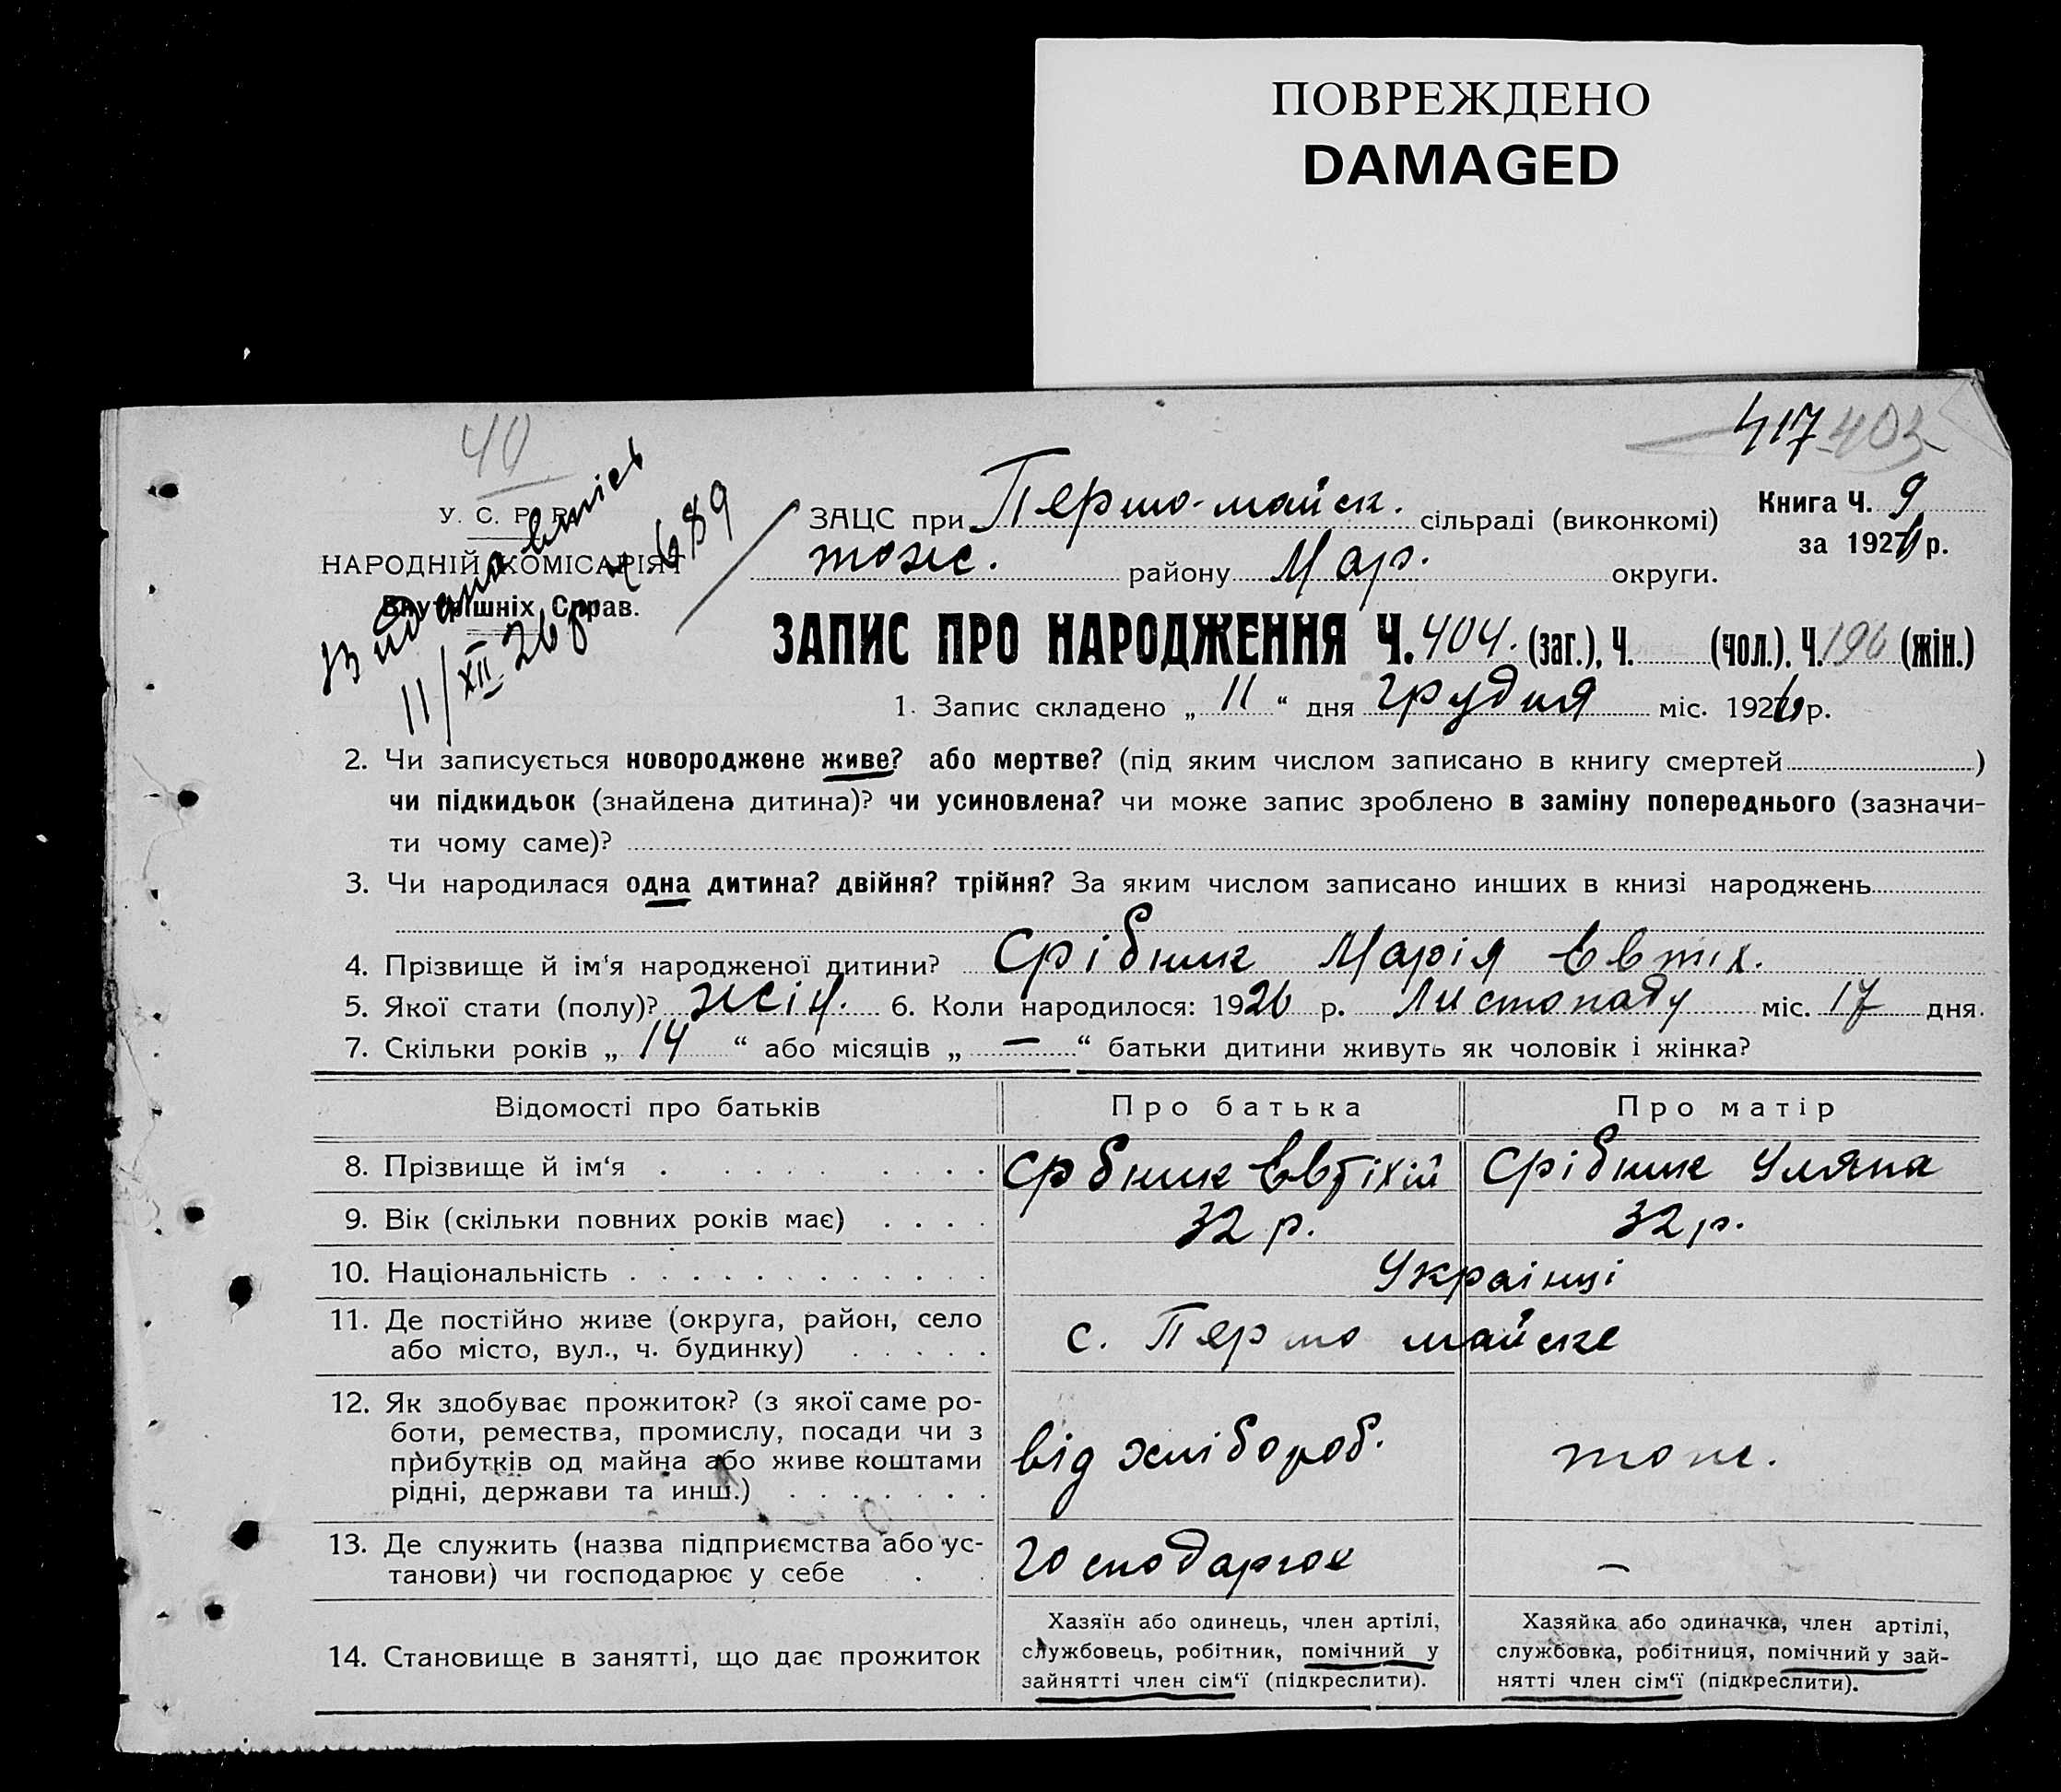 ПОВРЕЖДЕНО
DAMAGED
417 403
40
У. С. Р. Р.
НАРОДНІЙ КОМІСАРІЯТ
Внутрішніх Справ.
Видана випись
11/XII 26 р ч 689
ЗАЦС при Першо-майск. сільраді (виконкомі)
Книга Ч. 9
за 1926 р.
тож. району Мар. округи.
ЗАПИС ПРО НАРОДЖЕННЯ Ч. 404. (заг.), Ч. (чол.). Ч. 196 (жін.)
1. Запис складено „ 11 “ дня грудня міс. 1926 р.
2. Чи записується новороджене живе? або мертве? (під яким числом записано в книгу смертей )
чи підкидьок (знайдена дитина)? чи усиновлена? чи може запис зроблено в заміну попереднього (зазначи-
ти чому саме)?
3. Чи народилася одна дитина? двійня? трійня? За яким числом записано инших в книзі народжень
4. Прізвище й ім‘я народженої дитини? Срібник Марія Евтіх.
5. Якої стати (полу)? жін. 6. Коли народилося: 1926 р. Листопаду міс. 17 дня.
7. Скільки років „ 14 “ або місяців „ — “ батьки дитини живуть як чоловік і жінка?
Відомості про батьків Про батька Про матір
8. Прізвище й ім‘я Србник Евтіхій Срібник Уляна
9. Вік (скільки повних років має) 32 р. 32 р.
10. Національність Украінці
11. Де постійно живе (округа, район, село
або місто, вул., ч. будинку) с. Першо майске
12. Як здобуває прожиток? (з якої саме ро-
боти, ремества, промислу, посади чи з
прибутків од майна або живе коштами
рідні, держави та инш.) від хлібороб. тож.
13. Де служить (назва підприємства або ус-
танови) чи господарює у себе господарює –
14. Становище в занятті, що дає прожиток
Хазяїн або одинець, член артілі,
службовець, робітник, помічний у
зайнятті член сім‘ї (підкреслити).
Хазяйка або одиначка, член артілі,
службовка, робітниця, помічний у зай-
нятті член сім‘ї (підкреслити).